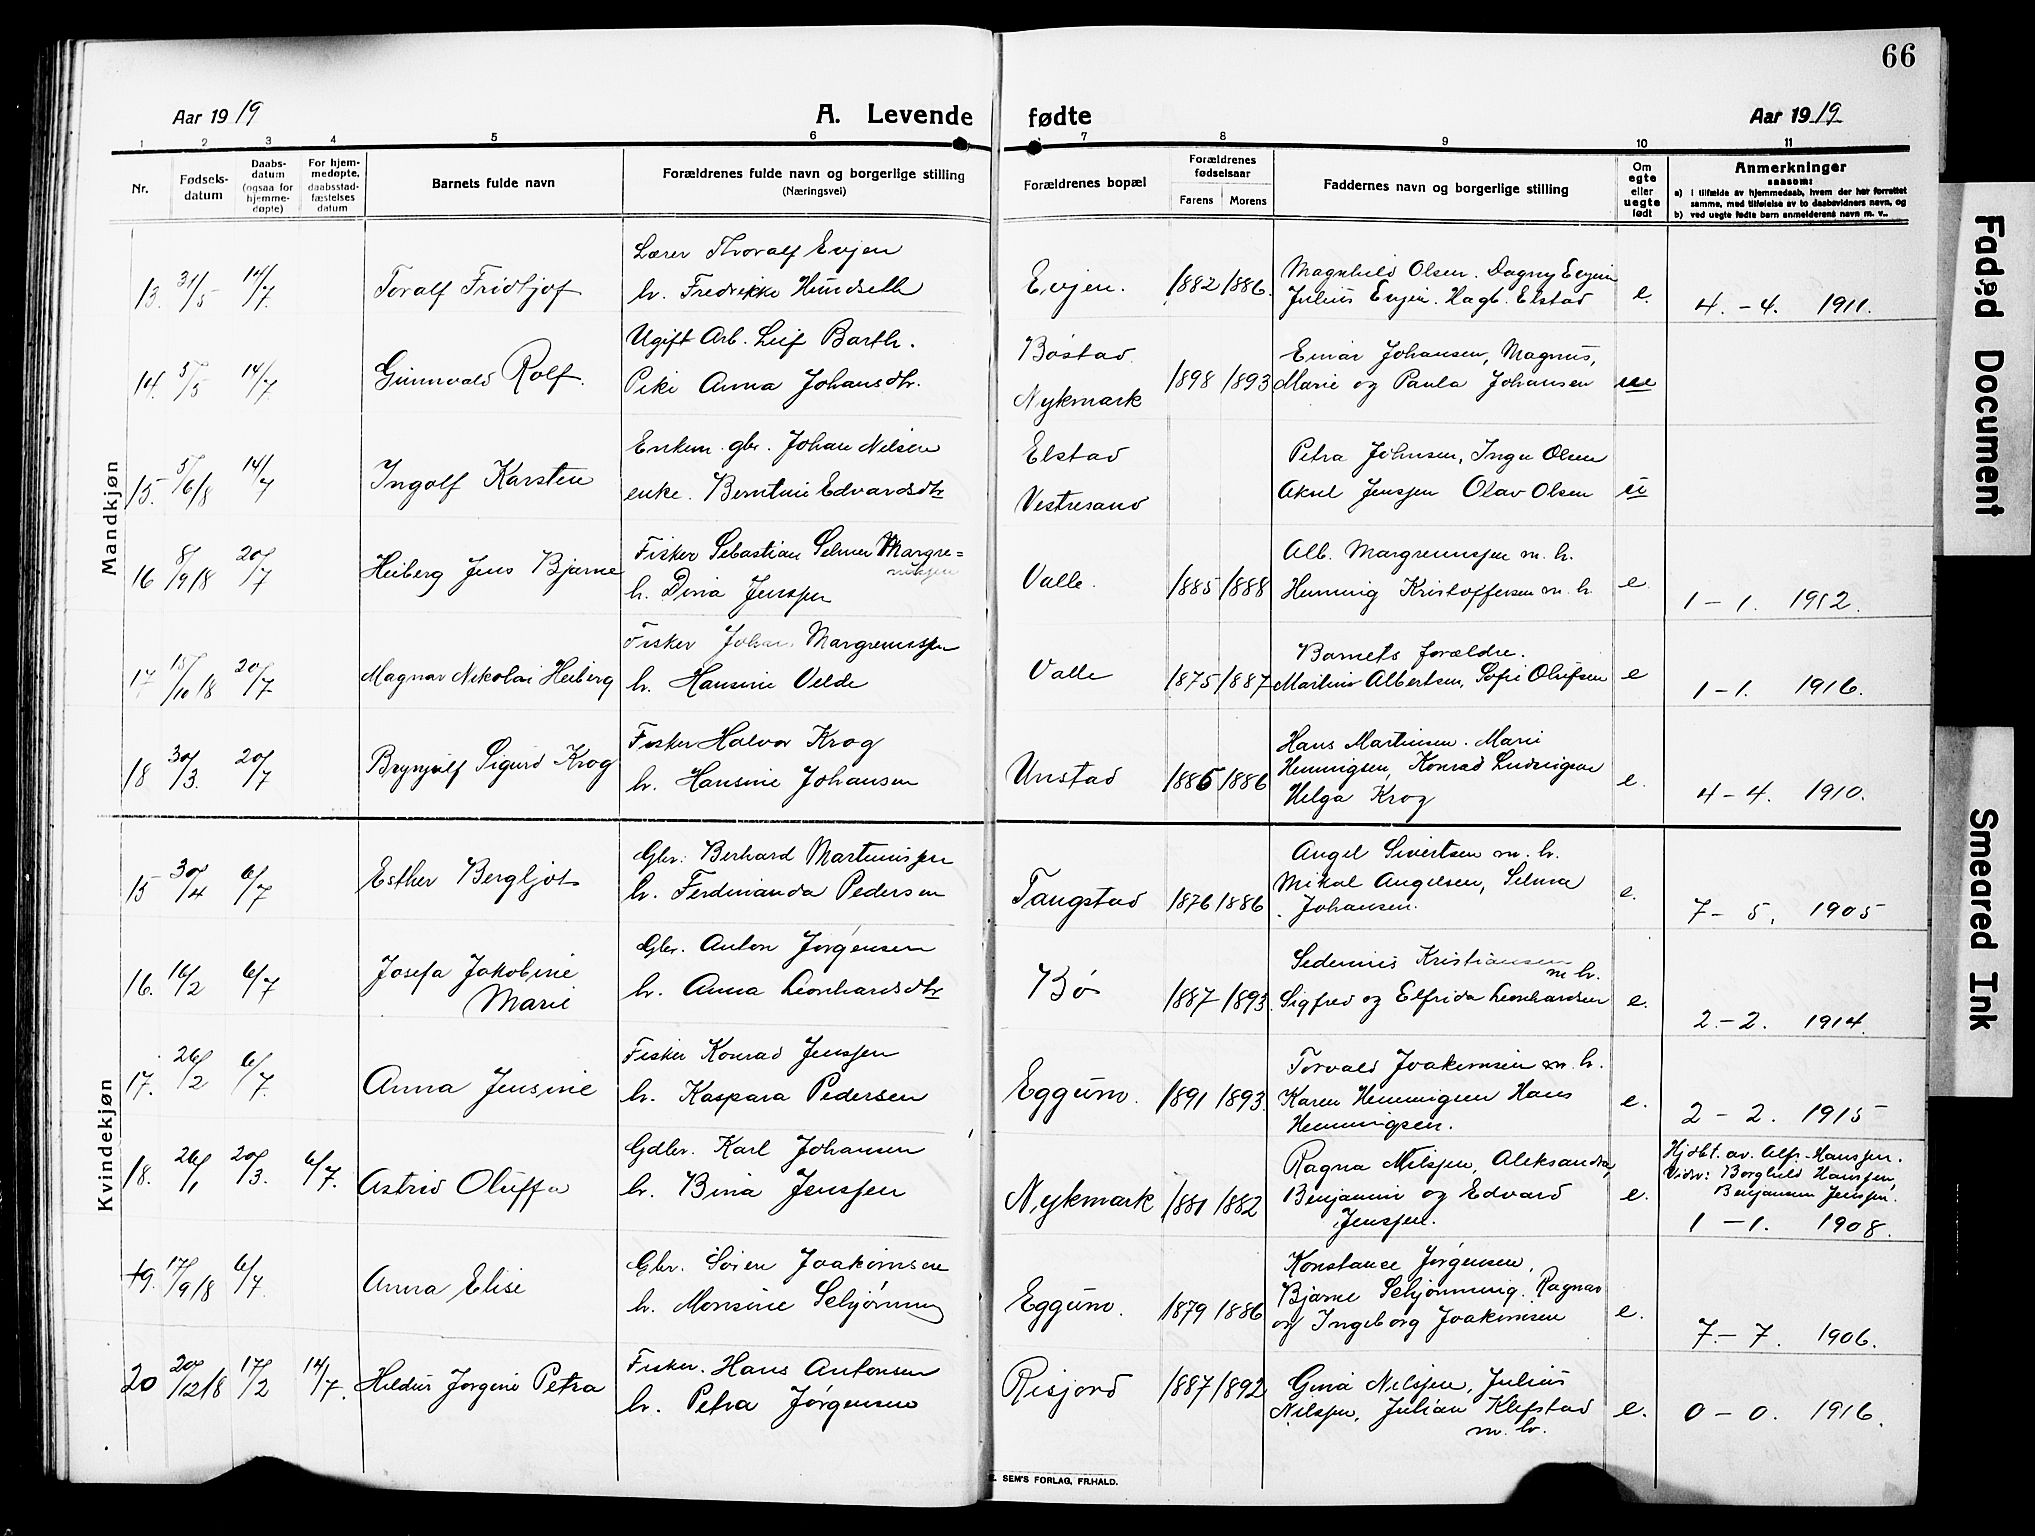 66
Aar 1919 A. Levende fødte Aar 1919
1 2 3 4 5 6 7 8 9 10 11
Nr.
Fødsels-
datum
Daabs-
datum
(ogsaa for
hjemme-
døpte)
For hjem-
medøpte,
daabsstad-
fæstelses
datum
Barnets fulde navn
Forældrenes fulde navn og borgerlige stilling
(Næringsvei)
Forældrenes bopæl
Forældrenes
fødselsaar
Farens Morens
Faddernes navn og borgerlige stilling
Om
egte
eller
uegte
født
Anmerkninger
saasom:
a) i tilfælde av hjemmedaab, hvem der har forrettet
samme, med tilføielse av to daabsvidners navn, og
b) ved uegte fødte barn anmelderens navn m. v..
Mandkjøn
13. 31/5 14/7 Toralf Fridtjof
Lærer Thoralf Evjen
h. Fredrikke Hundseth
Evjen. 1882 1886.
Magnhild Olsen. Dagny Evjen
Julius Evjen. Hagb. Elstad
e. 4. - 4. 1911.
14. 5/5 14/7 Gunnvald Rolf.
Ugift Arb. Leif Barth.
Pike Anna Johansdtr.
Bøstad.
Nykmark
1898 1893
Einar Johansen, Magnus,
Marie og Paula Johansen
ue
15. 5/6 18 14/7 Ingolf Karsten
Enkem. gbr. Johan Nilsen
enke. Berntine Edvardsdtr
Elstad
Vestresand
Petra Johnsen, Inga Olsen
Aksel Jenssen Olav Olsen
u
16 8/9 18 20/7 Heiberg Jens Bjarne
Fisker Sebastian Selmer Margre=
nussen
h. Dina Jenssen
Valle. 1885 1888
Alb. Margrenussen m. h.
Henning Kristoffersen m. h.
e. 1 - 1. 1912.
17 15/10 18 20/7 Magnar Nikolai Heiberg
Fisker Johan Margrenussen
h. Hansine Velde
Valle 1875 1887
Barnets forældre.
Martinus Albertsen, Sofie Olufsen
e 1 - 1. 1916.
18 30/3. 20/7 Brynjulf Sigurd Krog
Fisker Halvor Krog
h. Hansine Johansen
Unstad 1885 1886
Hans Martinsen. Marie
Henningsen, Konrad Ludvigsen
Helga Krog
e. 4 - 4. 1910.
Kvindekjøn
15 30/4 6/7 Esther Bergljot
Gbr. Berhard Martinussen
h. Ferdinanda Pedersen
Tangstad 1876 1886
Angel Sivertsen m. h.
Mikal Angelsen, Selma
Johansen.
e. 7 - 5. 1905
16. 16/2 6/7 Josefa Jakobine
Marie
Gbr. Anton Jørgensen
h. Anna Leonhardsdtr
Bø 1887 1893.
Sedenius Kristiansen
m. h.
Sigfred og Elfrida Leonhardsen
e. 2. - 2. 1914.
17. 26/2 6/7. Anna Jensine
Fisker Konrad Jenssen
h. Kaspara Pedersen
Eggum. 1891 1893.
Torvald Joakimsen m. h.
Karen Henningsen Hans
Henningsen.
e. 2 - 2. 1915
18. 26/1 20/3. 6/7. Astrid Oluffa
Gdbr. Karl Johansen
h. Bina Jenssen
Nykmark 1881 1882
Ragna Nilssen, Aleksandra,
Benjamin og Edvard
Jenssen.
e.
Hjdbt. av. Alfr. Hanssen.
Vidn: Borghild Hanssen,
Benjamin Jenssen.
1 - 1. 1908.
19. 17/9 18 6/7. Anna Elise
Gbr. Søren Joakimsen
h. Monsine Schjønning
Eggum. 1879 1886
Konstance Jørgensen,
Bjarne Schjønning. Ragnar
og Ingeborg Joakimsen
e. 7. - 7. 1906.
20 20/12 18 17/2 14/7. Hildur Jørgine Petra
Fisker. Hans Antonsen
h. Petra Jørgensen
Risjord 1887 1892
Gina Nilssen, Julius
Nilssen, Julian Klefstad
m. h.
e. 0 - 0. 1916.
E. SEM'S FORLAG, FR.HALD.
Faded Document
Smeared Ink